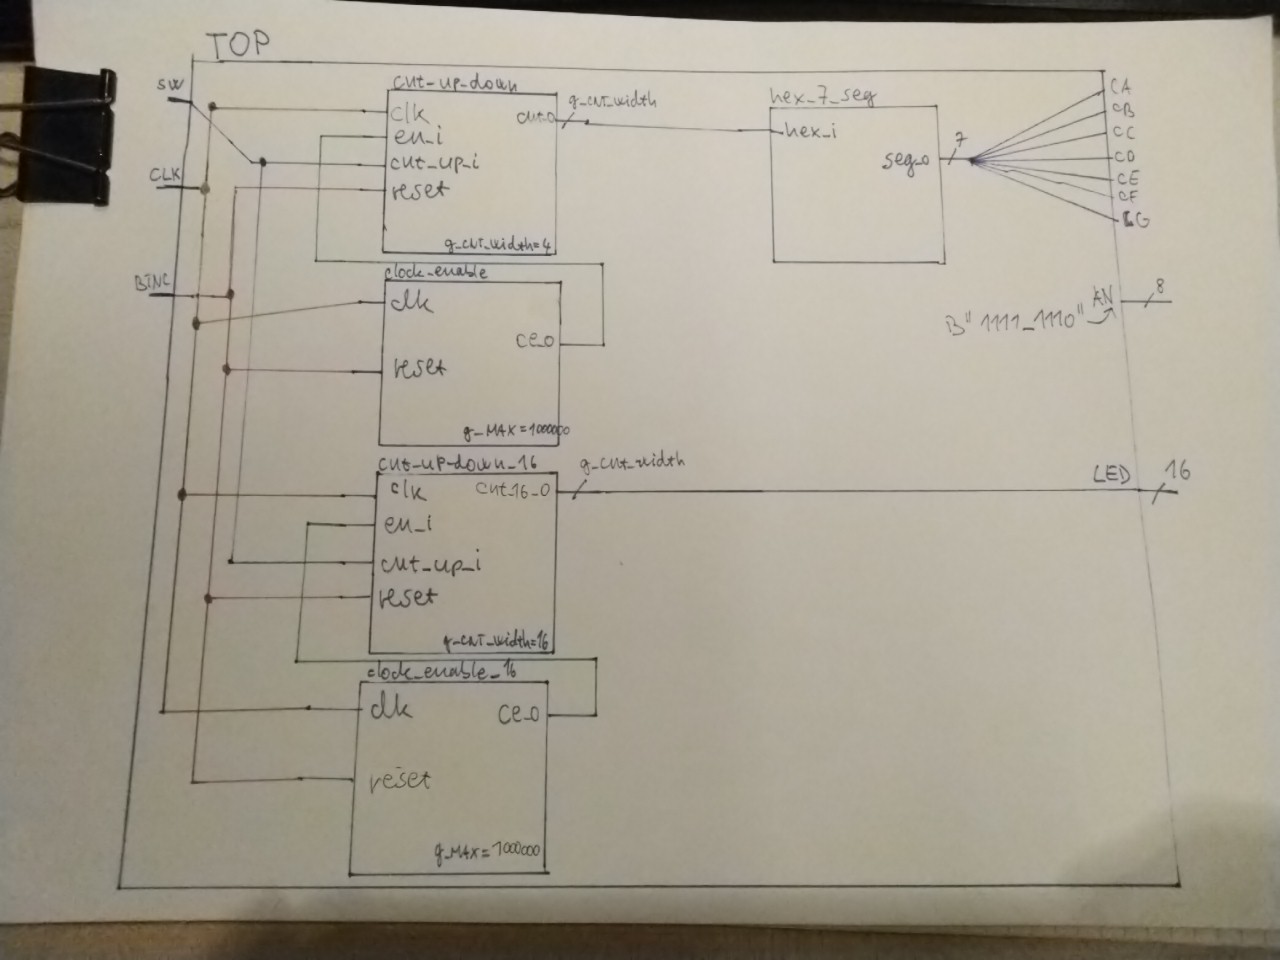 TOP
SW
CLK
BTNC
cnt-up-down
clk
en_i
cnt_up_i
reset
cnt_o
g_CNT_width=4
g_CNT_width
hex_7_seg
hex_i
seg_o
7
CA
CB
CC
CD
CE
CF
CG
clock_enable
clk
reset
ce_o
g_MAX=1000000
AN
8
B"1111_1110"
cnt-up-down_16
clk
en_i
cnt_up_i
reset
cnt_16_o
g_CNT_width=16
g_cnt_width
LED
16
clock_enable_16
clk
reset
ce_o
g_MAX=1000000